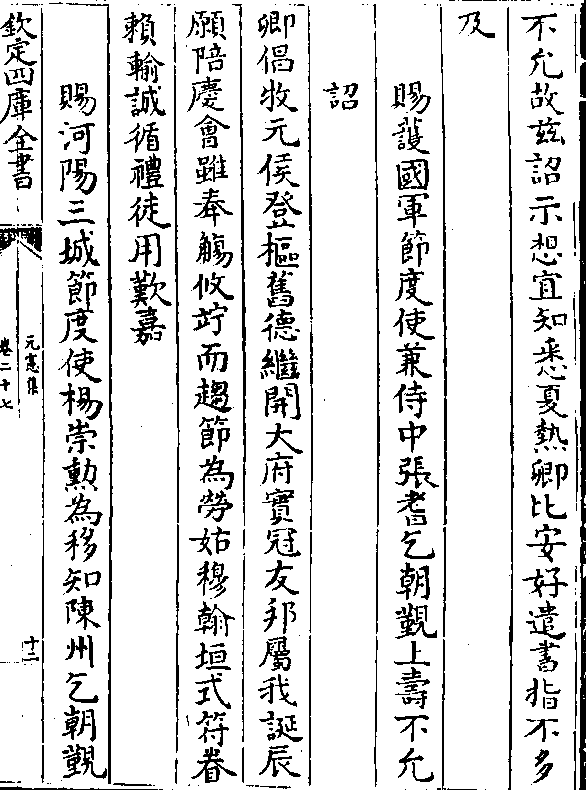 不允故兹詔示想宜知悉夏熱卿比安好遣書指不多
及
賜護國軍節度使兼侍中張耆乞朝覲上壽不允
詔
卿倡牧元侯登樞舊德繼開大府實冠友邦屬我誕辰
願陪慶會雖奉觴攸竚而趨節為勞姑穆翰垣式符眷
賴輸誠循禮徒用歎嘉
賜河陽三城節度使楊崇勲為移知陳州乞朝覲
欽定四庫全書
元憲集
卷二十七
十二